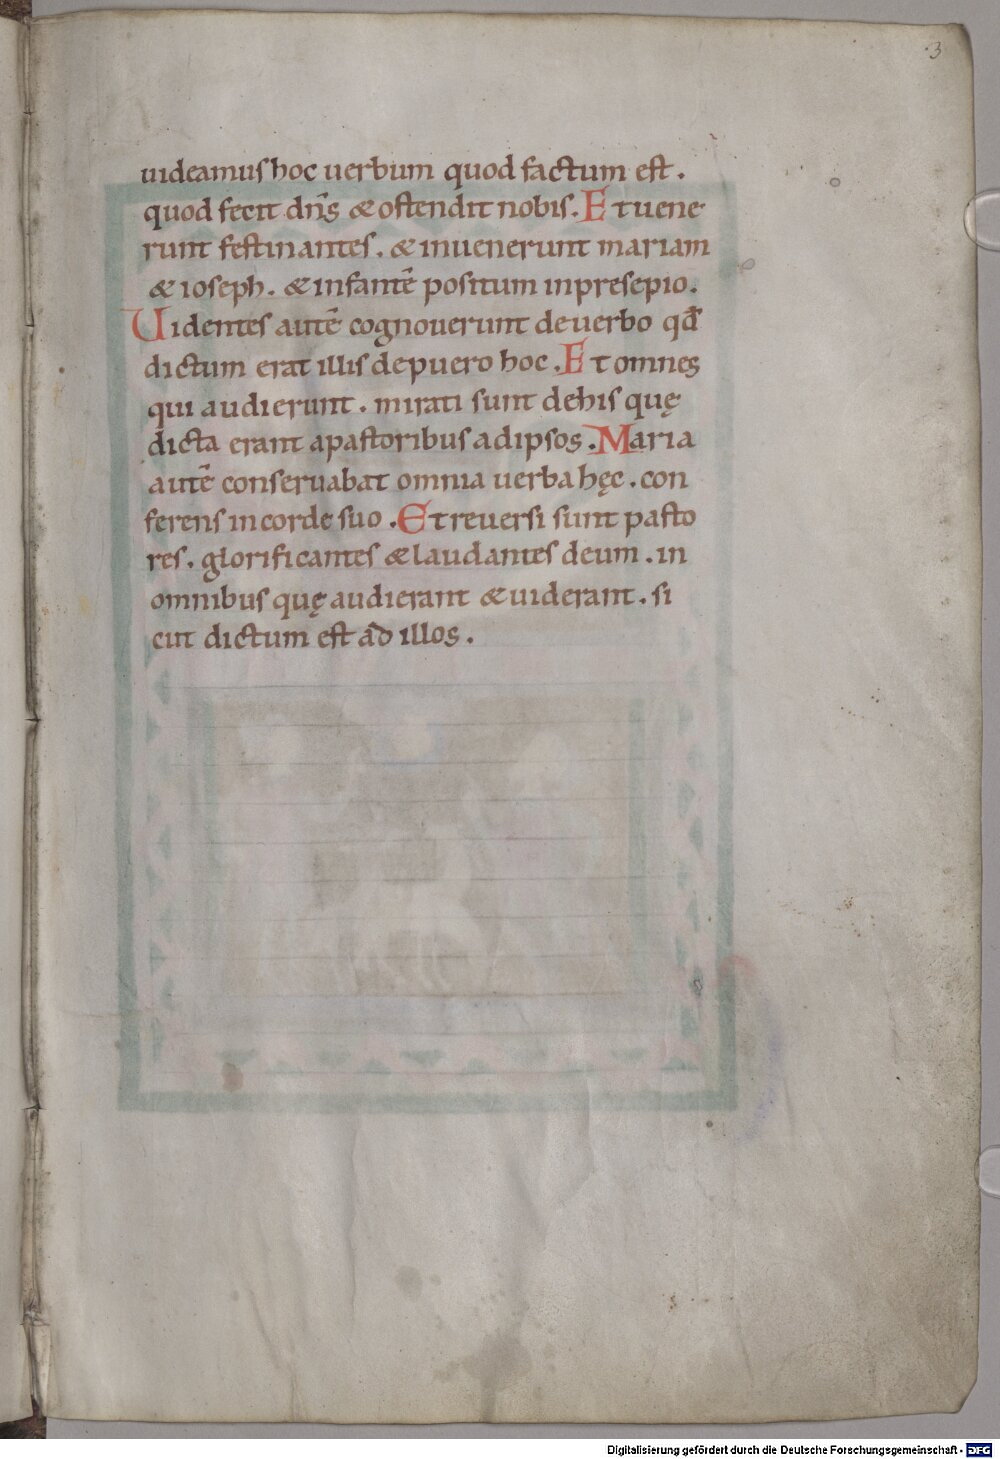 3
uideamus hoc uerbum quod factum est.
quod fecit dn̄s & ostendit nobis. Et uene
runt festinantes. & inuenerunt mariam
& ioseph. & infantē positum inpresepio.
Uidentes autē cognouerunt deuerbo qđ
dictum erat illis depuero hoc. Et omnes
qui audierunt. mirati sunt dehis quę
dicta erant apastoribus adipsos. Maria
autē conseruabat omnia uerba hęc. con
ferens incorde suo. Et reuersi sunt pasto
res. glorificantes & laudantes deum. in
omnibus quę audierant & uiderant. si
cut dictum est ad illos.
Digitalisierung gefördert durch die Deutsche Forschungsgemeinschaft - DFG